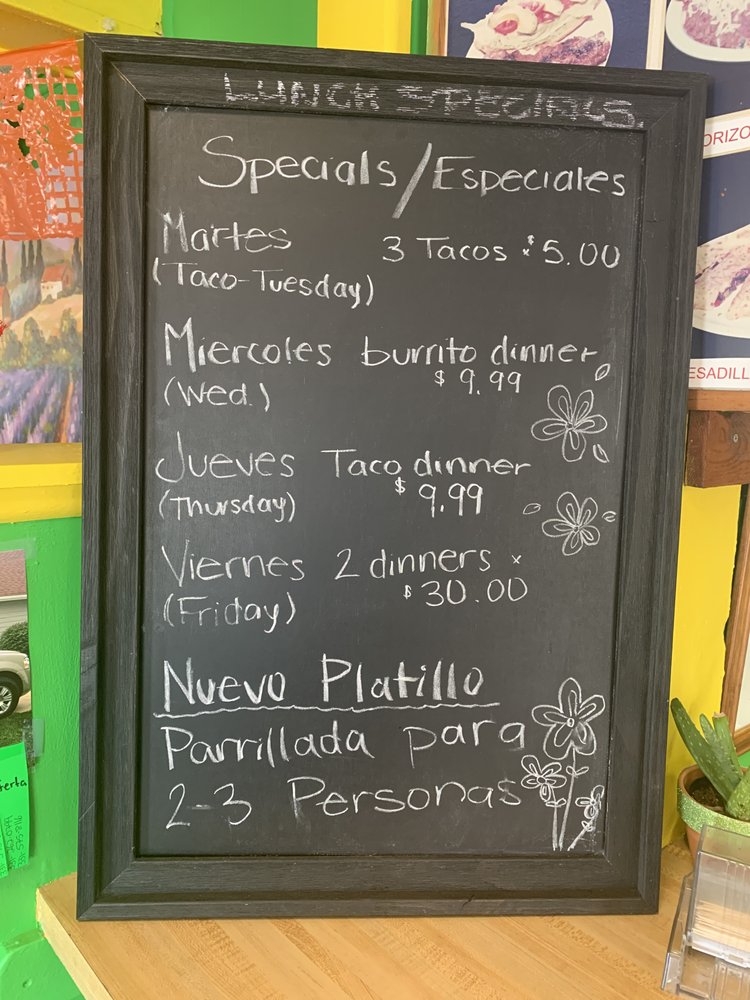 LUNCH SPECIALS.
Specials/Especiales
Martes 3 Tacos x $5.00
(Taco-Tuesday)
Miercoles burrito dinner
(Wed.) $9.99
Jueves Taco dinner
(Thursday) $9.99
Viernes 2 dinners x
(Friday) $30.00
Nuevo Platillo
Parrillada para
2-3 Personas
ORIZO
ESADILL
erta